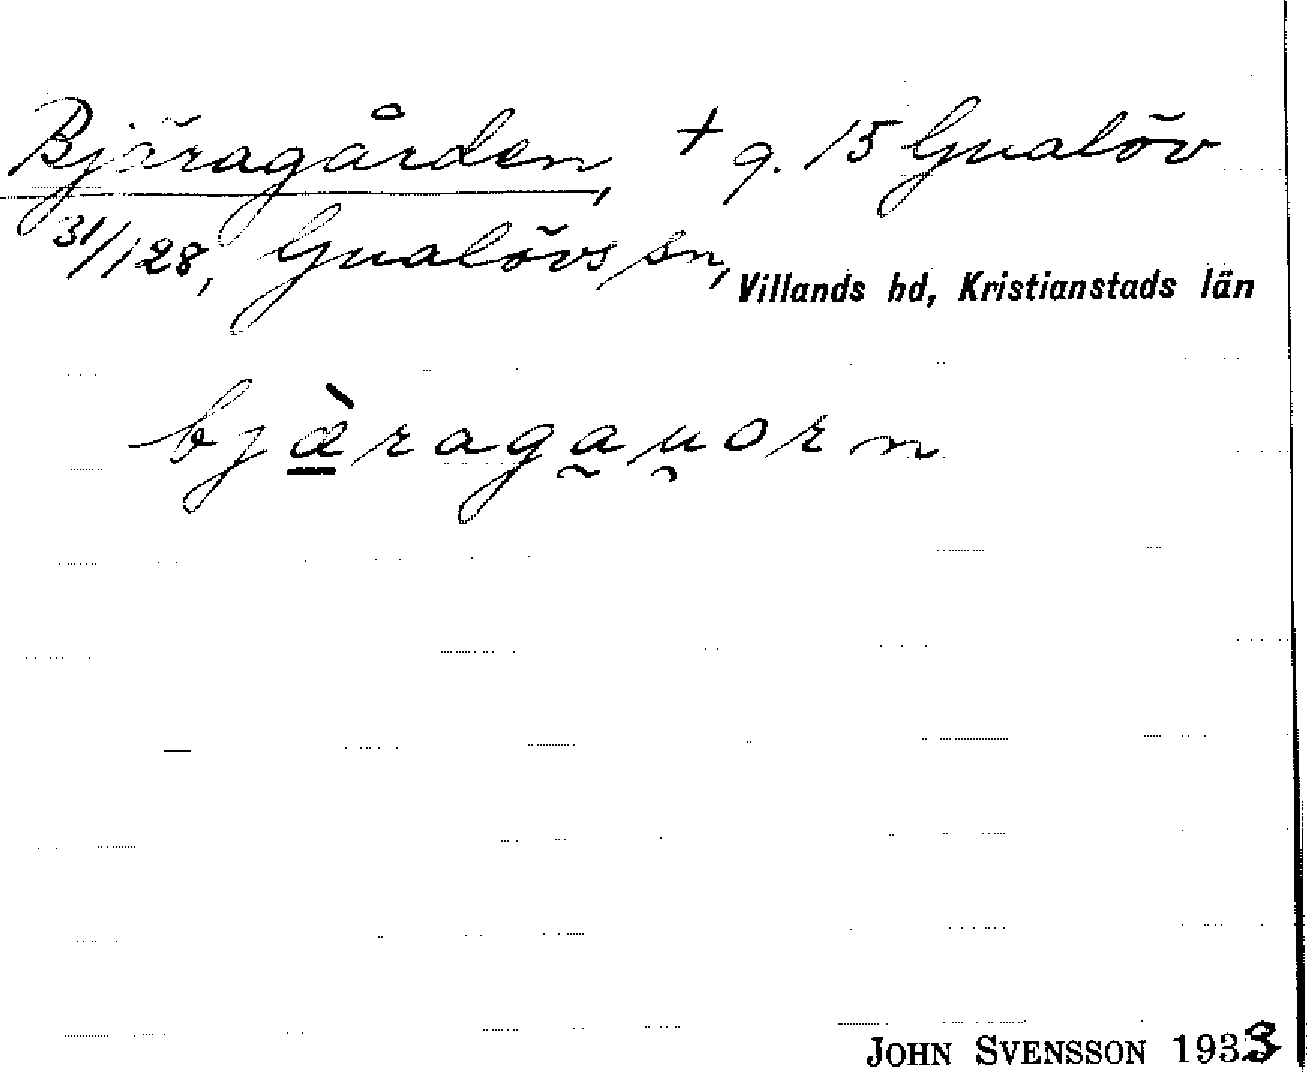 Bjäragården, + g. 15 Gualöv
31/128, Gualövs sn, Villands hd, Kristianstads län
bjæ̠̀raga̰u̯orn
JOHN SVENSSON 1933